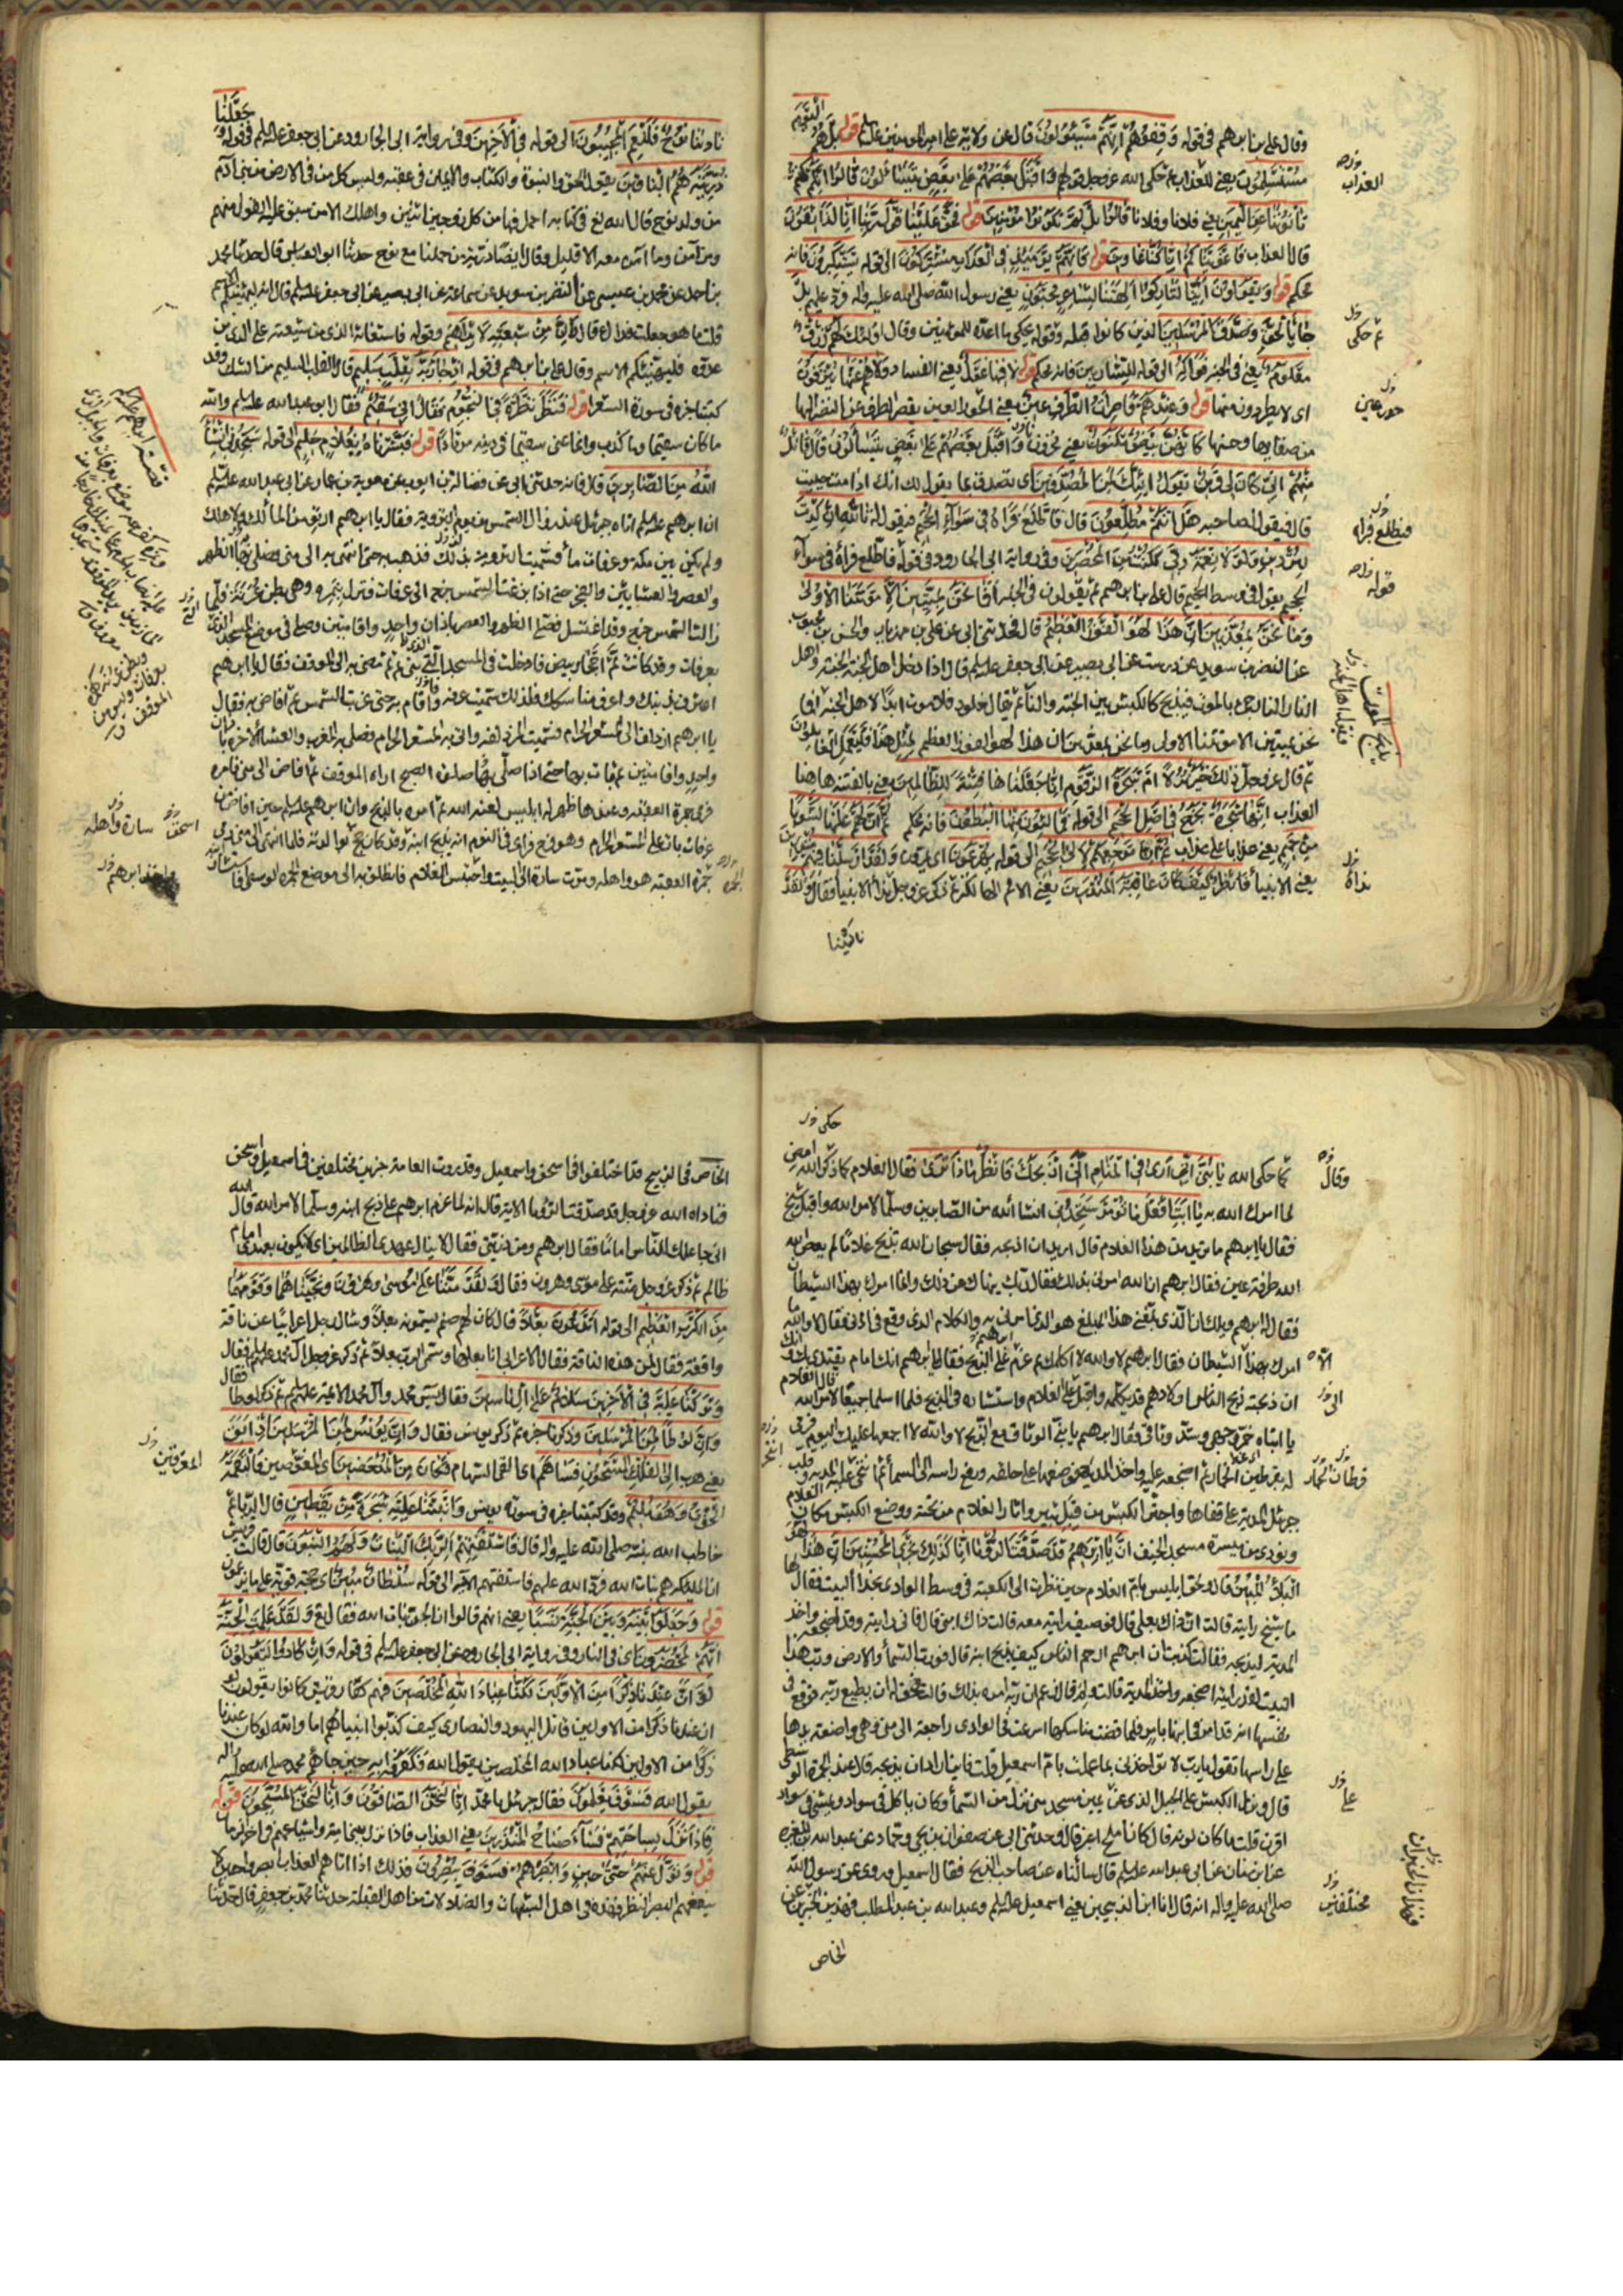 النعيم
وقال علي بن ابرهيم في قوله وَقِفُوهُمْ اِنَّهُمْ مَسْئُولُونَ قال عن ولاية علي امير المؤمنين عليه السلم قوله بَلْ هُمُ
مُسْتَسْلِمُونَ يعني للعذاب ثم حكى الله عز وجل قولهم وَاَقْبَلَ بَعْضُهُمْ عَلى بَعْضٍ يَتَسَاءَلُونَ قالُوا اِنَّكُمْ كُنْتُمْ
تَأْتُونَنا عَنِ الْيَمِينِ يعني فلانا وفلانا قالُوا بَلْ لَمْ تَكُونُوا مُؤْمِنِينَ قوله فَحَقَّ عَلَيْنا قَوْلُ رَبِّنا اِنَّا لَذائِقُونَ
قال العذاب فَاَغْوَيْناكُمْ اِنَّا كُنَّا غاوِينَ قوله فَاِنَّهُمْ يَوْمَئِذٍ فِي الْعَذابِ مُشْتَرِكُونَ الى قوله يَسْتَكْبِرُونَ فانه
محكم قوله وَيَقُولُونَ اَئِنَّا لَتارِكُوا آلِهَتِنا لِشاعِرٍ مَجْنُونٍ يعني رسول الله صلى الله عليه واله فرد عليهم بَلْ
جاءَ بِالْحَقِّ وَصَدَّقَ الْمُرْسَلِينَ الذين كانوا قبله وقوله ثم حكى ما اعد الله للمؤمنين وقال اُولئِكَ لَهُمْ رِزْقٌ
مَعْلُومٌ يعني في الجنة فَواكِهُ الى قوله للشاربين فانه محكم قوله لا فِيها غَوْلٌ يعني الفساد وَلا هُمْ عَنْها يُنْزَفُونَ
اي لا يطردون منها قوله وَعِنْدَهُمْ قاصِراتُ الطَّرْفِ عِينٌ يعني الحور العين يقصر الطرف عن النظر اليها
من صفائها وحسنها كَاَنَّهُنَّ بَيْضٌ مَكْنُونٌ يعني مخزون فَاَقْبَلَ بَعْضُهُمْ عَلى بَعْضٍ يَتَسَاءَلُونَ قالَ قائِلٌ
مِنْهُمْ اِنِّي كانَ لِي قَرِينٌ يَقُولُ اَئِنَّكَ لَمِنَ الْمُصَدِّقِينَ اي تصدق بما يقول لك انك اذا مت حييت
قال فيقول لصاحبه هَلْ اَنْتُمْ مُطَّلِعُونَ قال فَاطَّلَعَ فَرَآهُ فِي سَواءِ الْجَحِيمِ فيقول له تَاللهِ اِنْ كِدْتَ
لَتُرْدِينِ وَلَوْ لا نِعْمَةُ رَبِّي لَكُنْتُ مِنَ الْمُحْضَرِينَ وفي رواية ابي الجارود في قوله فاطلع فرآه في سواء
الجحيم يقول في وسط الجحيم قال علي بن ابرهيم ثم يقولون في الجنة اَفَما نَحْنُ بِمَيِّتِينَ اِلَّا مَوْتَتَنَا الْاُولى
وَما نَحْنُ بِمُعَذَّبِينَ اِنَّ هذا لَهُوَ الْفَوْزُ الْعَظِيمُ قال فحدثني ابي عن علي بن مهزيار والحسن بن محبوب
عن النضر بن سويد عن درست عن ابي بصير عن ابي جعفر عليه السلم قال اذا دخل اهل الجنة الجنة واهل
النار النار جيء بالموت فيذبح كالكبش بين الجنة والنار ثم يقال خلود فلا موت ابدا لاهل الجنة افما
نحن بميتين الا موتتنا الاولى وما نحن بمعذبين ان هذا لهو الفوز العظيم لِمِثْلِ هذا فَلْيَعْمَلِ الْعامِلُونَ
ثم قال عز وجل اَذلِكَ خَيْرٌ نُزُلًا اَمْ شَجَرَةُ الزَّقُّومِ اِنَّا جَعَلْناها فِتْنَةً لِلظَّالِمِينَ يعني بالفتنة هاهنا
العذاب اِنَّها شَجَرَةٌ تَخْرُجُ فِي اَصْلِ الْجَحِيمِ الى قوله فَمالِؤُنَ مِنْهَا الْبُطُونَ فانه محكم ثُمَّ اِنَّ لَهُمْ عَلَيْها لَشَوْبًا
مِنْ حَمِيمٍ يعني عذابا على عذاب ثُمَّ اِنَّ مَرْجِعَهُمْ لَاِلَى الْجَحِيمِ الى قوله يُهْرَعُونَ اي يمرون وَلَقَدْ اَرْسَلْنا فِيهِمْ مُنْذِرِينَ
يعني الانبياء فَانْظُرْ كَيْفَ كانَ عاقِبَةُ الْمُنْذَرِينَ يعني الامم الهالكة ثم ذكر عز وجل نداء الانبياء فقال وَلَقَدْ
نادينا
العذاب
ثم حكى
حور عين
فيطلع فراه
قوله
يذبح الموت
نداء
جَعَلْنا
نادانا نُوحٌ فَلَنِعْمَ الْمُجِيبُونَ الى قوله فِي الْآخِرِينَ وفي رواية ابي الجارود عن ابي جعفر عليه السلم في قوله و
ذُرِّيَّتَهُ هُمُ الْباقِينَ يقول الحق والنبوة والكتاب والايمان في عقبه وليس كل من في الارض من بني آدم
من ولد نوح قال الله تع في كتابه احمل فيها من كل زوجين اثنين واهلك الا من سبق عليه القول منهم
ومن آمن وما آمن معه الا قليل وقال ايضا ذرية من حملنا مع نوح حدثنا ابو العباس قال حدثنا محمد
بن احمد عن محمد بن عيسى عن النضر بن سويد عن سماعة عن ابي بصير عن ابي جعفر عليه السلم قال انه ليهنئكم الاسم
قلت ما هو جعلت فداك قال وَاِنَّ مِنْ شِيعَتِهِ لَاِبْراهِيمَ وقوله فاستغاثه الذي من شيعته على الذي من
عدوه فليهنئكم الاسم وقال علي بن ابرهيم في قوله اِذْ جاءَ رَبَّهُ بِقَلْبٍ سَلِيمٍ قال القلب السليم من الشك وقد
كتبنا خبره في سورة الشعراء قوله فَنَظَرَ نَظْرَةً فِي النُّجُومِ فَقالَ اِنِّي سَقِيمٌ فقال ابو عبد الله عليه السلم والله
ما كان سقيما وما كذب وانما عنى سقيما في دينه مرتادا قوله فَبَشَّرْناهُ بِغُلامٍ حَلِيمٍ الى قوله سَتَجِدُنِي اِنْ شاءَ
اللهُ مِنَ الصَّابِرِينَ قال فانه حدثني ابي عن فضالة بن ايوب عن معوية بن عمار عن ابي عبد الله عليه السلم
ان ابرهيم عليه السلم اتاه جبرئيل عند زوال الشمس من يوم التروية فقال يا ابرهيم ارتو من الماء لك ولاهلك
ولم يكن بين مكة وعرفات ماء فسميت التروية بذلك فذهب به حتى انتهى به الى منى فصلى بها الظهر
والعصر والعشائين والفجر حتى اذا بزغت الشمس خرج الى عرفات فنزل بنمرة وهي بطن عرنة فلما
زالت الشمس خرج وقد اغتسل فصلى الظهر والعصر باذان واحد واقامتين وصلى في موضع المسجد الذي
بعرفات وقد كانت ثم احجار بيض فادخلت في المسجد الذي بني ثم مضى به الى الموقف فقال يا ابرهيم
اعترف بذنبك واعرف مناسكك فلذلك سميت عرفة واقام به حتى غربت الشمس ثم افاض به فقال
يا ابرهيم ازدلف الى المشعر الحرام فسميت المزدلفة واتى به المشعر الحرام فصلى به المغرب والعشاء الآخرة باذان
واحد واقامتين ثم بات بها حتى اذا صلى بها صلوة الصبح اراه الموقف ثم افاض الى منى فامره
فرمى جمرة العقبة وعندها ظهر له ابليس لعنه الله ثم امره بالذبح وان ابرهيم عليه السلم حين افاض من
عرفات بات على المشعر الحرام وهو فزح فراى في النوم انه يذبح ابنه وقد كان حج بوالدته فلما انتهى الى منى رمى
جمرة العقبة هو واهله ومرت سارة الى البيت واحتبس الغلام فانطلق به الى موضع الجمرة الوسطى فاستشار ابنه
قصة ابرهيم عليه السلم
اسحق
سارة واهله
حكى
كما حكى الله يا بُنَيَّ اِنِّي اَرى فِي الْمَنامِ اَنِّي اَذْبَحُكَ فَانْظُرْ ماذا تَرى فقال الغلام كما ذكر الله امض
لما امرك الله به يا اَبَتِ افْعَلْ ما تُؤْمَرُ سَتَجِدُنِي انشاء الله من الصابرين وسلما لامر الله واقبل شيخ
فقال يا ابرهيم ما تريد من هذا الغلام قال اريد ان اذبحه فقال سبحان الله تذبح غلاما لم يعص
الله طرفة عين فقال ابرهيم ان الله امرني بذلك فقال ربك ينهاك عن ذلك وانما امرك بهذا الشيطان
فقال له ابرهيم ويلك ان الذي بلغني هذا المبلغ هو الذي امرني به والكلام الذي وقع في اذني فقال لا والله ما
امرك بهذا الا الشيطان فقال ابرهيم لا والله لا اكلمك ثم عزم على الذبح فقال يا ابرهيم انك امام يقتدى بك وانك
ان ذبحته ذبح الناس اولادهم فلم يكلمه واقبل على الغلام واستشاره في الذبح فلما اسلما جميعا لامر الله قال الغلام
يا ابتاه خمر وجهي وشد وثاقي فقال ابرهيم يا بني الوثاق مع الذبح لا والله لا اجمعهما عليك اليوم فرمى
له بقرطان الحمار ثم اضجعه عليه واخذ المدية فوضعها على حلقه ورفع راسه الى السماء ثم انتحى عليه المدية وقلب
جبرئيل المدية على قفاها واجتر الكبش من قبل ثبير واثار الغلام من تحته ووضع الكبش مكان الغلام
ونودي من ميسرة مسجد الخيف اَنْ يا اِبْراهِيمُ قَدْ صَدَّقْتَ الرُّؤْيا اِنَّا كَذلِكَ نَجْزِي الْمُحْسِنِينَ اِنَّ هذا لَهُوَ
الْبَلاءُ الْمُبِينُ قال ولحق ابليس بام الغلام حين نظرت الى الكعبة في وسط الوادي بحذاء البيت فقال لها
ما شيخ رايته قالت ان ذاك بعلي قال فوصيف رايته معه قالت ذاك ابني قال فاني رايته وقد اضجعه واخذ
المدية ليذبحه فقالت كذبت ان ابرهيم ارحم الناس كيف يذبح ابنه قال فورب السماء والارض ورب هذا
البيت لقد رايته اضجعه واخذ المدية قالت ولم قال زعم ان ربه امره بذلك قالت فحق له ان يطيع ربه فوقع في
نفسها انه قد امر في ابنها بامر فلما قضت مناسكها اسرعت في الوادي راجعة الى منى وهي واضعة يدها
على راسها تقول يا رب لا تؤاخذني بما عملت بام اسمعيل قلت فاين اراد ان يذبحه قال عند الجمرة الوسطى
قال ونزل الكبش على الجبل الذي عن يمين مسجد منى نزل من السماء وكان ياكل في سواد ويمشي في سواد
اقرن قلت ما كان لونه قال كان املح اغبر قال وحدثني ابي عن صفوان بن يحيى وحماد عن عبد الله بن المغيرة
عن ابن سنان عن ابي عبد الله عليه السلم قال سالناه عن صاحب الذبح فقال اسمعيل وروي عن رسول الله
صلى الله عليه واله انه قال انا ابن الذبيحين يعني اسمعيل عليه السلم وعبد الله بن عبد المطلب فهذين الخبرين عن
الخاص
وقال
الا
الى
قرطان الحمار
على
مختلفين
فهذان الخبران
الخاص في الذبيح قد اختلفوا في اسحق واسمعيل وقد روت العامة خبرين مختلفين في اسمعيل واسحق
فناداه الله عز وجل قد صدقت الرؤيا الاية قال انه لما عزم ابرهيم على ذبح ابنه وسلما لامر الله قال الله
اني جاعلك للناس اماما فقال ابرهيم ومن ذريتي فقال لا ينال عهدي الظالمين اي لا يكون بعهدي امام
ظالم ثم ذكر عز وجل منته على موسى وهرون فقال وَلَقَدْ مَنَنَّا عَلى مُوسى وَهرُونَ وَنَجَّيْناهُما وَقَوْمَهُما
مِنَ الْكَرْبِ الْعَظِيمِ الى قوله اَتَدْعُونَ بَعْلًا قال كان لهم صنم يسمونه بعلا وسال رجل اعرابيا عن ناقة
واقفة فقال لمن هذه الناقة فقال الاعرابي انا بعلها وسمي الرب بعلا ثم ذكر عز وجل آل محمد عليهم السلم فقال
وَتَرَكْنا عَلَيْهِ فِي الْآخِرِينَ سَلامٌ عَلى آلِ ياسِينَ فقال يس محمد وآل محمد الائمة عليهم السلم ثم ذكر لوطا فقال
وَاِنَّ لُوطًا لَمِنَ الْمُرْسَلِينَ وذكرنا خبره ثم ذكر يونس فقال وَاِنَّ يُونُسَ لَمِنَ الْمُرْسَلِينَ اِذْ اَبَقَ
يعني هرب اِلَى الْفُلْكِ الْمَشْحُونِ فَساهَمَ اي القى السهام فَكانَ مِنَ الْمُدْحَضِينَ اي المغوصين فَالْتَقَمَهُ
الْحُوتُ وَهُوَ مُلِيمٌ وقد كتبنا خبره في سورة يونس وَاَنْبَتْنا عَلَيْهِ شَجَرَةً مِنْ يَقْطِينٍ قال الدباء ثم
خاطب الله نبيه صلى الله عليه واله فقال فَاسْتَفْتِهِمْ اَلِرَبِّكَ الْبَناتُ وَلَهُمُ الْبَنُونَ قال قالت قريش
ان الملائكة هم بنات الله فرد الله عليهم فاستفتهم الآية الى قوله سُلْطانٌ مُبِينٌ اي حجة قوية على ما يزعمون
قوله وَجَعَلُوا بَيْنَهُ وَبَيْنَ الْجِنَّةِ نَسَبًا يعني انهم قالوا ان الجن بنات الله فقال تع وَلَقَدْ عَلِمَتِ الْجِنَّةُ
اِنَّهُمْ لَمُحْضَرُونَ اي في النار وفي رواية ابي الجارود عن ابي جعفر عليه السلم في قوله وَاِنْ كانُوا لَيَقُولُونَ
لَوْ اَنَّ عِنْدَنا ذِكْرًا مِنَ الْاَوَّلِينَ لَكُنَّا عِبادَ اللهِ الْمُخْلَصِينَ فهم كفار قريش كانوا يقولون لو
ان عندنا ذكرا من الاولين قاتل الله اليهود والنصارى كيف كذبوا انبياءهم اما والله لو كان عندنا
ذكرا من الاولين لكنا عباد الله المخلصين يقول الله فَكَفَرُوا بِهِ حين جاءهم محمد صلى الله عليه واله
يقول الله فَسَوْفَ يَعْلَمُونَ فقال جبرئيل يا محمد اِنَّا لَنَحْنُ الصَّافُّونَ وَاِنَّا لَنَحْنُ الْمُسَبِّحُونَ قوله
فَاِذا نَزَلَ بِساحَتِهِمْ فَساءَ صَباحُ الْمُنْذَرِينَ يعني العذاب فاذا نزل ببني امية واشياعهم في آخر الزمان
قوله وَتَوَلَّ عَنْهُمْ حَتَّى حِينٍ وَاَبْصِرْهُمْ فَسَوْفَ يُبْصِرُونَ فذلك اذا اتاهم العذاب ابصروا حين لا
ينفعهم البصر النظر فهذه في اهل الشبهات والضلالات من اهل القبلة حدثنا محمد بن جعفر قال حدثنا